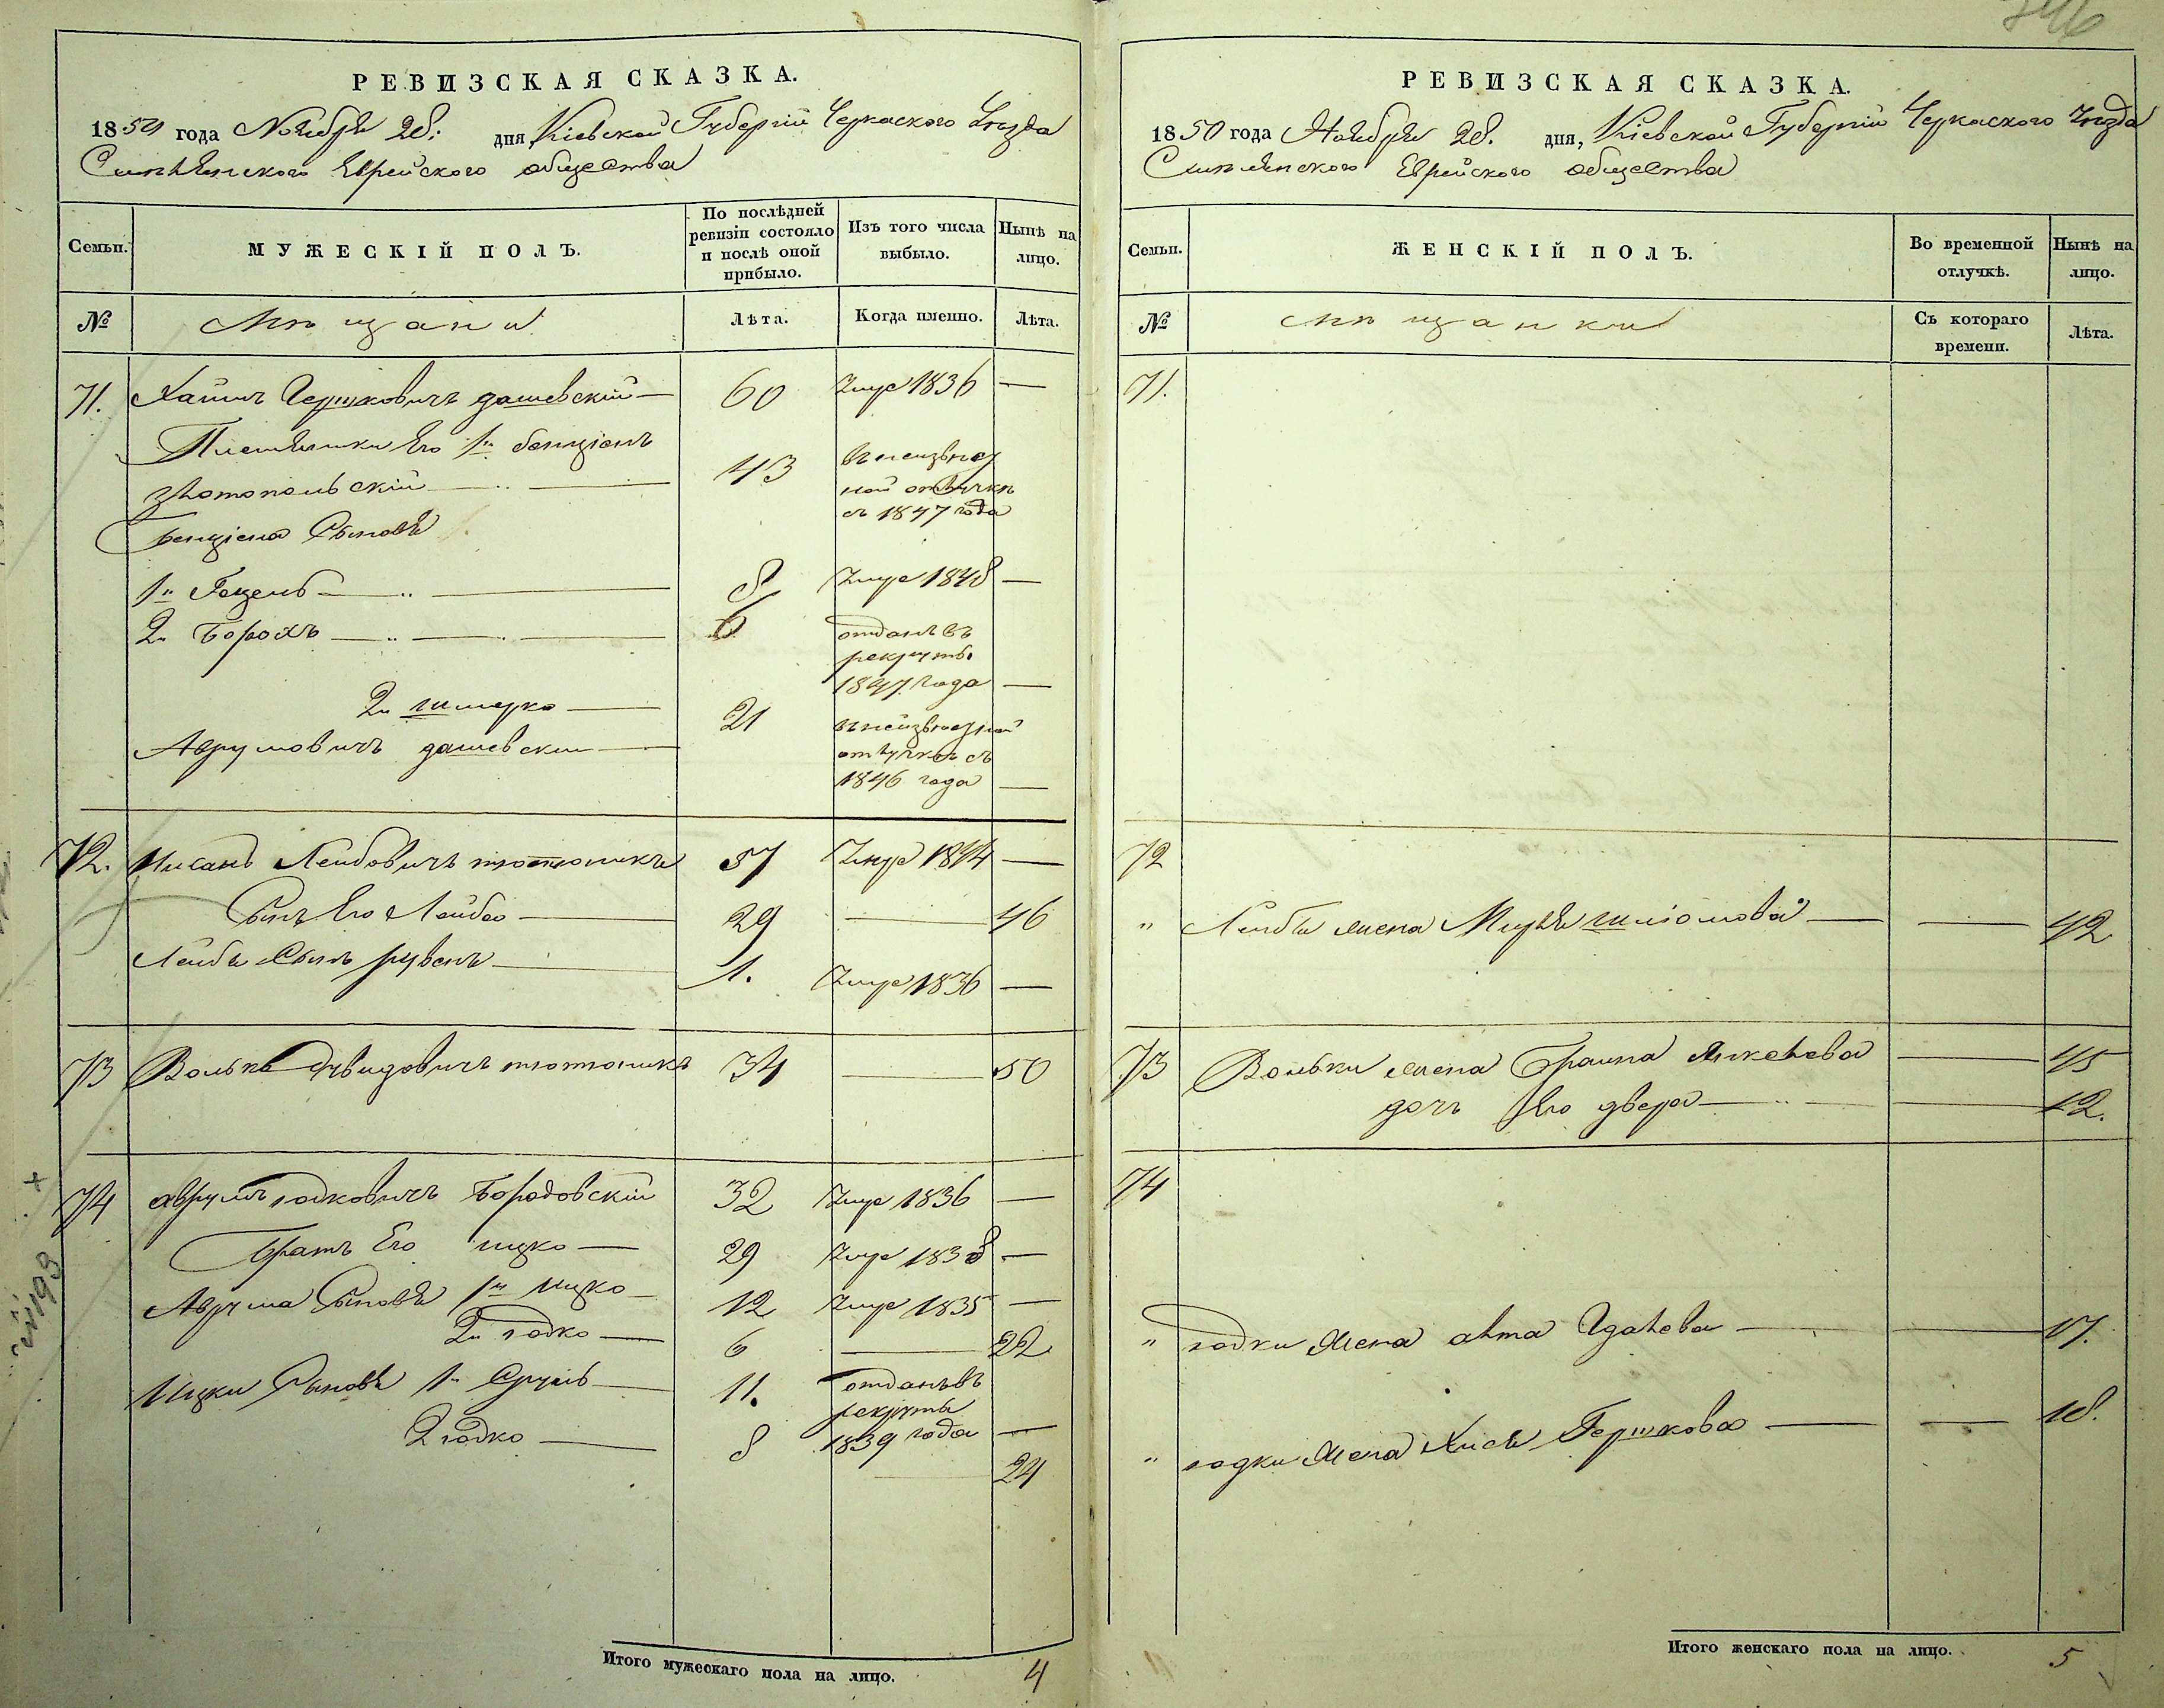 РЕВИЗСКАЯ СКАЗКА.
1850 года Ноября 28. дня, Кіевской Губерніи Черкаского Уезда
Смѣлянского Еврейского общества
Семьи.
МУЖЕСКІЙ ПОЛЪ.
По послѣдней ревизіи состояло и послѣ оной прибыло.
Изъ того числа выбыло.
Нынѣ на лицо.
№
Мѣщани
Лѣта.
Когда именно.
Лѣта.
71. Хаимъ Гершковичъ Дашевскій 60 Умре 1836
Племянники Его 1й Бенціонъ
Златопольскій 43 въ неизвѣстной отлучкѣ съ 1847 года
Бенціона Сыновя
1й Гецель 8 Умре 1848
2й Борохъ 6 отданъ въ рекруты 1847 года
2й Шмерко
Аврумовичъ Дашевский 21 въ неизвѣстной отлучкѣ съ 1846 года
72. Нисанъ Леибовичъ 57 Умре 1844
Сынъ Его Лейба 29 46
Лейбы Сынъ Рувенъ 1. Умре 1836
73 Волько Дувидовичъ 34 50
74 Аврумъ Іодковичъ Бородовскій 32 Умре 1836
Братъ Его Ицко 29 Умре 1838
Аврума Сыновя 1й Ицко 12 Умре 1835
2й Іодко 6 22
Ицки Сыновя 1й Сруль 11. отданъ въ рекруты 1839 года
2 Іодко 8 24
Итого мужескаго пола на лицо. 4
РЕВИЗСКАЯ СКАЗКА.
1850 года Ноября 28. дня, Кіевской Губерніи Черкаского Уезда
Смѣлянского Еврейского общества
Семьи.
ЖЕНСКІЙ ПОЛЪ.
Во временной отлучкѣ.
Нынѣ на лицо.
№
Мѣщанки
Съ котораго времени.
Лѣта.
71.
72
" Лейбы жена Миря Шліомова 42
73 Вольки жена Браина Янкелева 45
дочь Его Двера 12.
74
" Іодки жена 17.
" Іодки жена Хися Гершкова 18.
Итого женскаго пола на лицо. 5